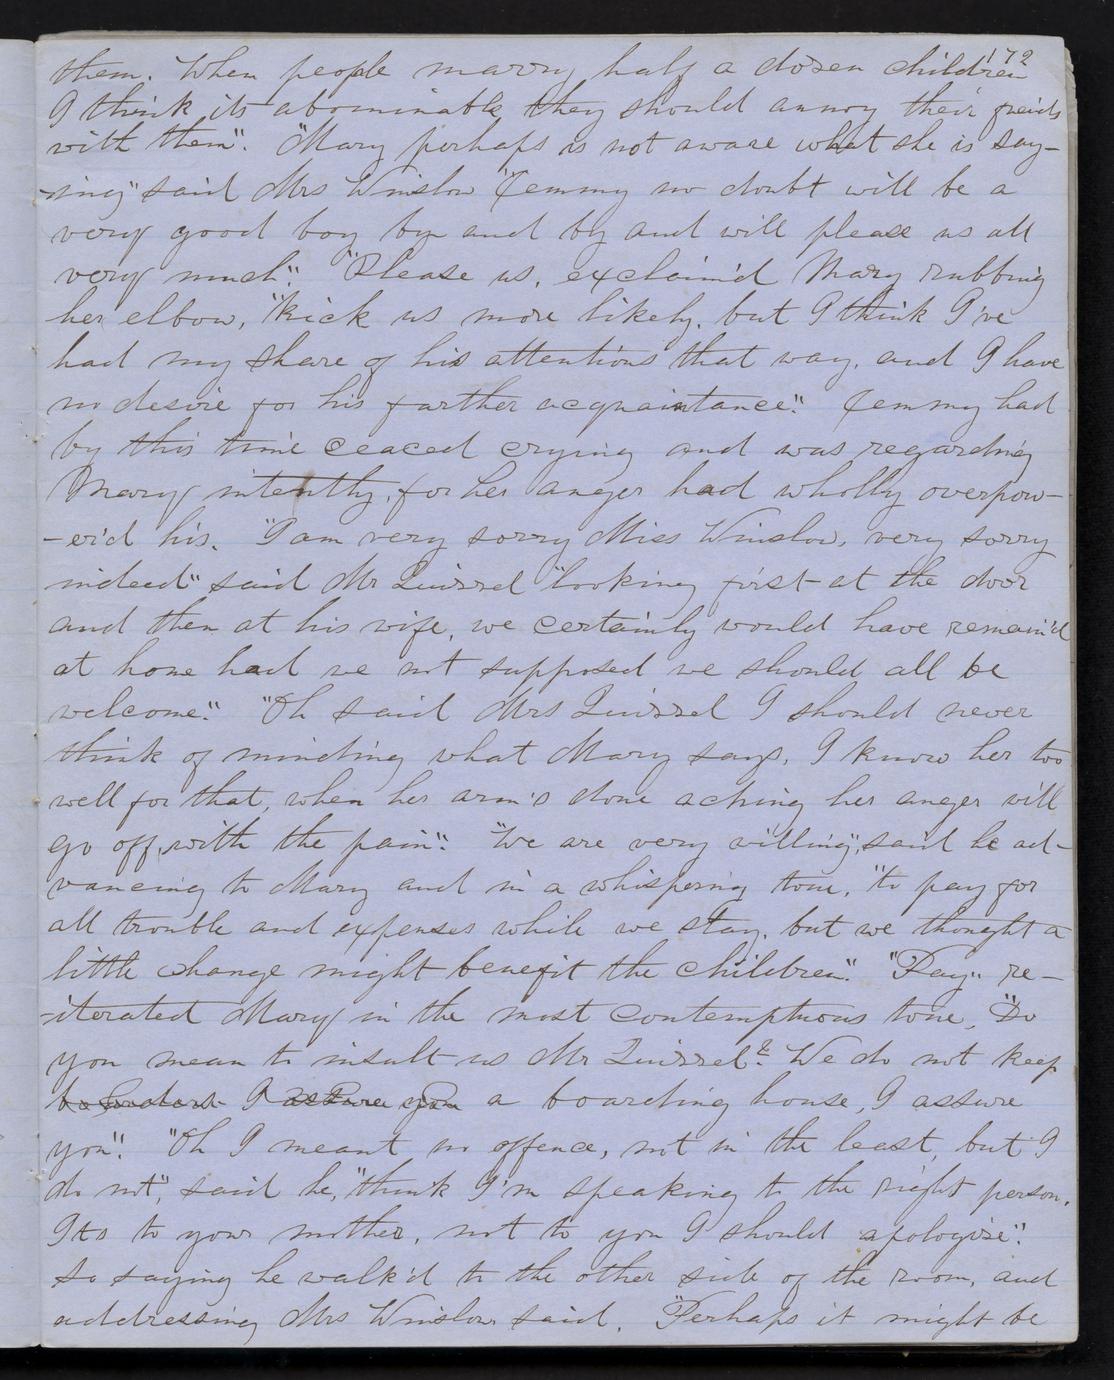 172
them. When people marry half a dozen children
I think its abominable they should annoy their freids
with them". "Mary perhaps is not aware what she is say-
-ing" said Mrs Winslow "Jemmy no doubt will be a
very good boy by and by and will please us all
very much". "Please us, exclaim'd Mary rubbing
her elbow, "kick us more likely, but I think I've
had my share of his attentions that way, and I have
no desire for his farther acquaintance". Jemmy had
by this time ceaced crying and was regarding
Mary intently, for her anger had wholly overpow-
-er'd his. "I am very sorry Miss Winslow, very sorry
indeed" said Mr Quizzel "looking first at the door
and then at his wife, we certainly would have remain'd
at home had we not supposed we should all be
welcome". "Oh said Mrs Quizzel I should never
think of minding what Mary says, I know her too
well for that, when her arm's done aching her anger will
go off, with the pain". "We are very willing", said he ad-
vancing to Mary and in a whispering tone, "to pay for
all trouble and expenses while we stay, but we thought a
little change might benefit the children". "Pay" re-
-iterated Mary in the most contemptuous tone, "Do
you mean to insult us Mr Quizzel? We do not keep
I assure you a boarding house, I assure
you". "Oh I meant no offence, not in the least, but I
do not", said he, "think I'm speaking to the right person,
Its to your mother, not to you I should apologize".
So saying he walk'd to the other side of the room, and
addressing Mrs Winslow said, "Perhaps it might be